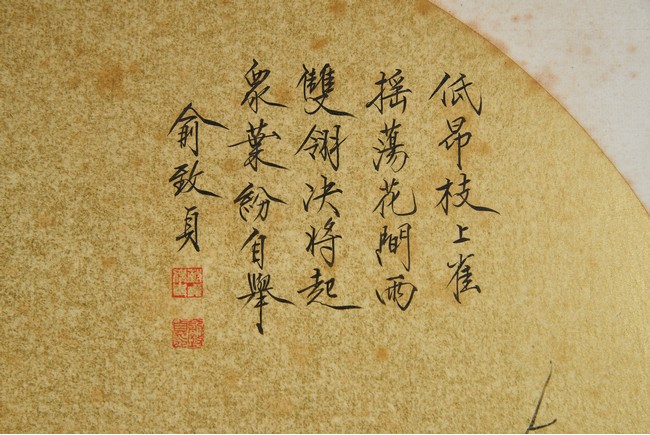 低昂枝上雀
摇蕩花間雨
雙翎决将起
衆葉紛自舉
俞致貞